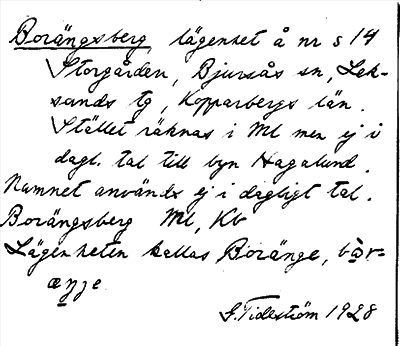 Borängsberg, lägenhet å nr s 14
Storgården, Bjursås sn, Lek-
sands tg, Kopparbergs län.
Stället räknas i Ml men ej i
dagl. tal till byn Hagalund.
Namnet används ej i dagligt tal.
Borängsberg Ml, Kb
Lägenheten kallas Boränge, bòr-
æŋje
G. Tideström 1928